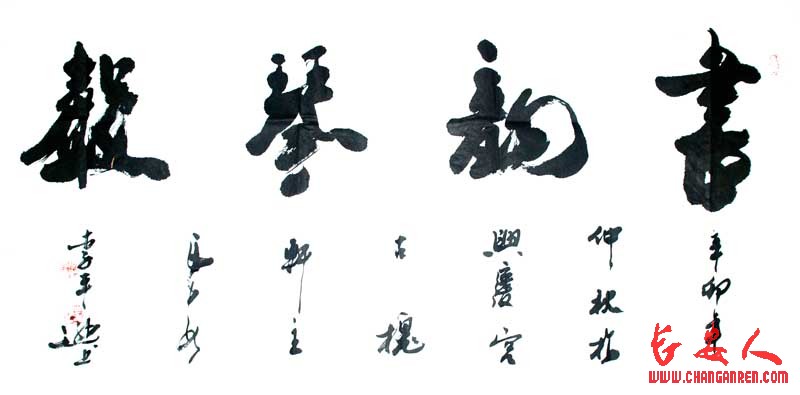 書韵琴聲
辛卯年
仲秋於
興慶宮
古槐
軒主
李平
长安人
WWW.CHANGANREN.COM